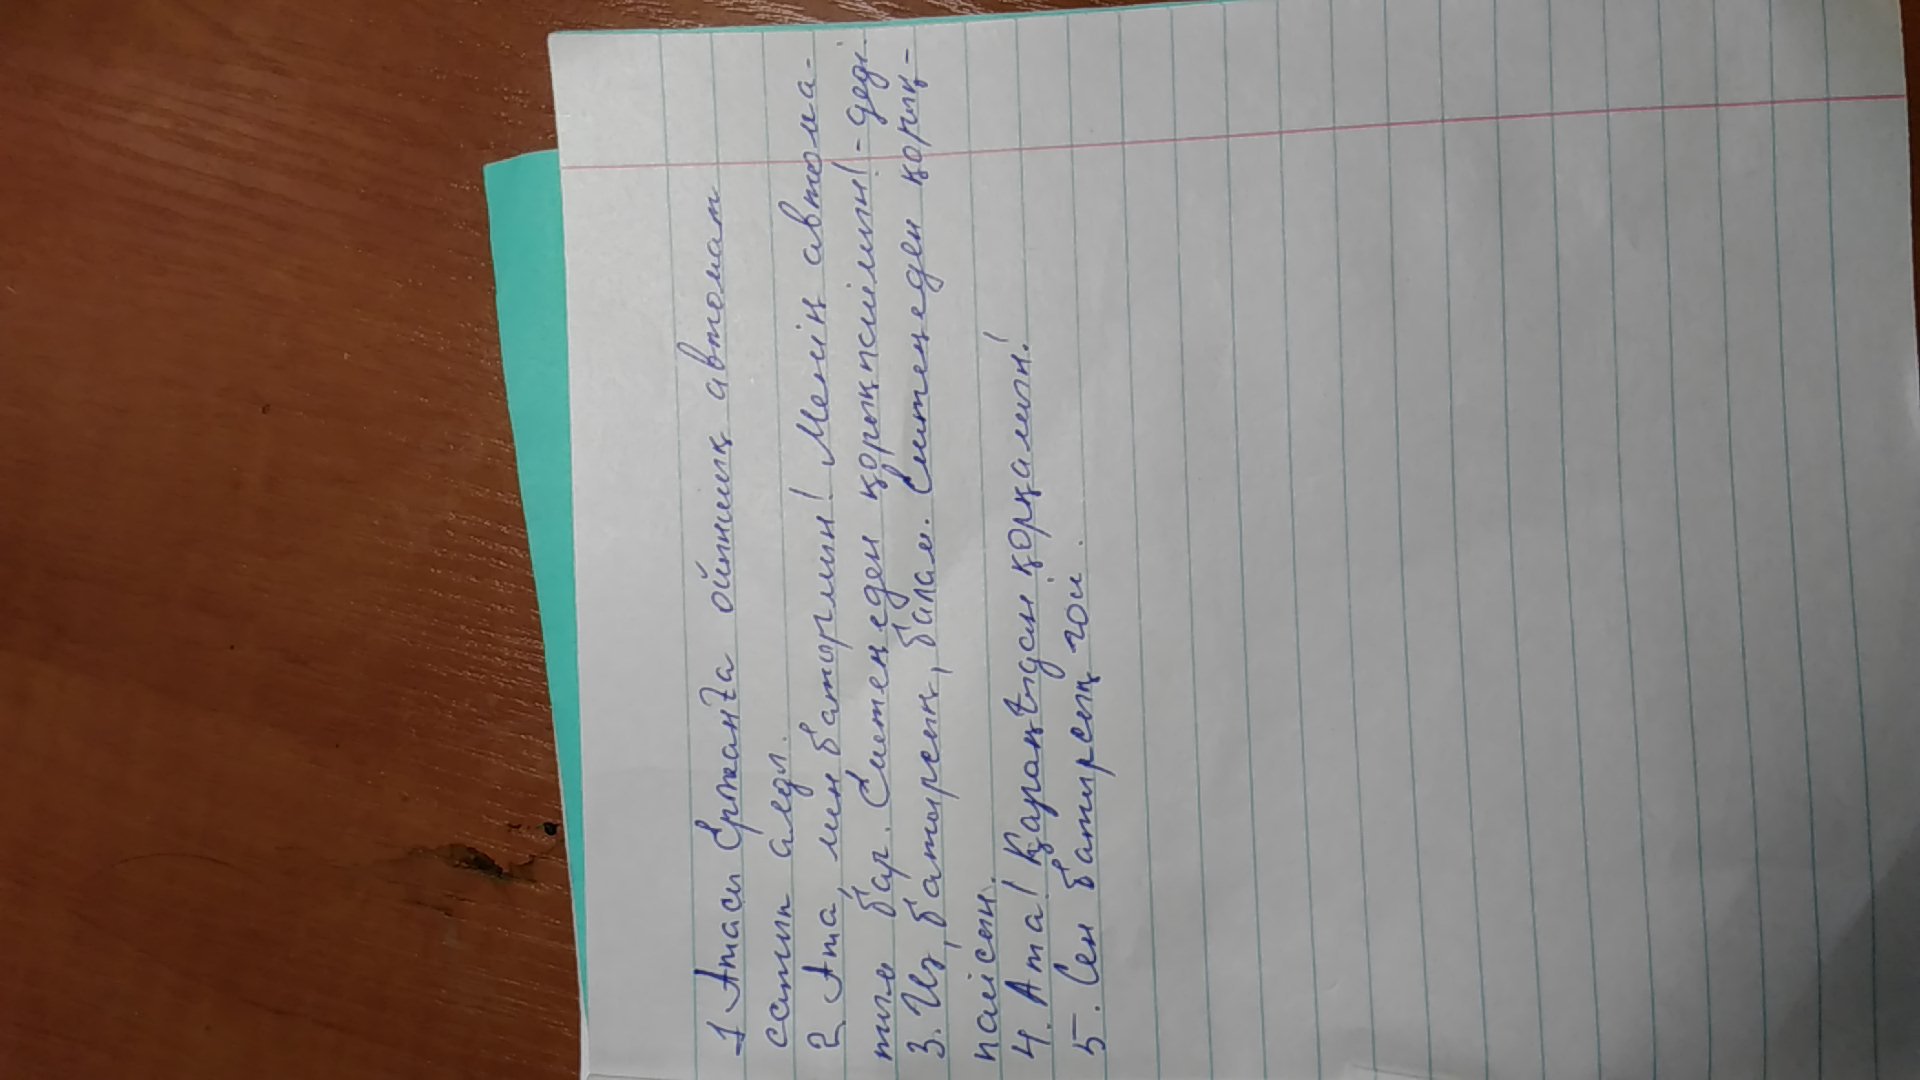 1 Атасы Ержанға ойыншық автомат
сатып алды.
2 Ата, мен батырмын! Менің автома-
тым бар. Ештеңеден қорықпаймын! - деді.
3. Иә, батырсың, балам. Ештеңеден қорық-
пайсың.
4. Ата! Қараңғыдан қорқамын!
5. Сен батырсың ғой.